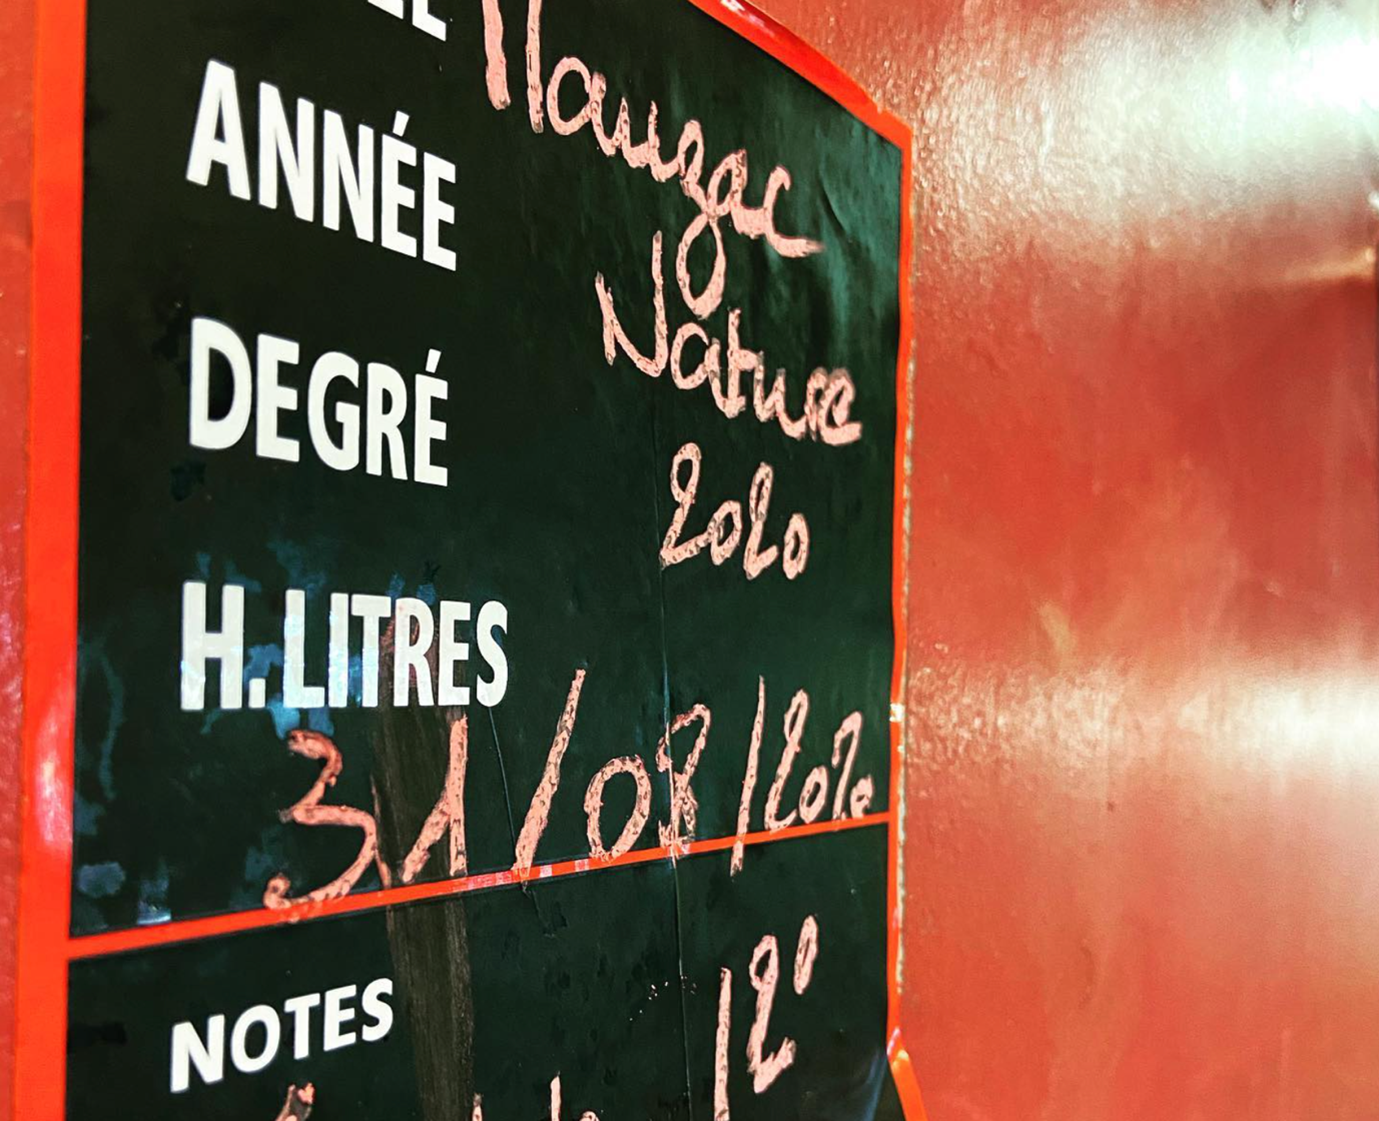 Mauzac
ANNÉE
Nature
DEGRÉ
2020
H.LITRES
31/08/2020
12°
NOTES